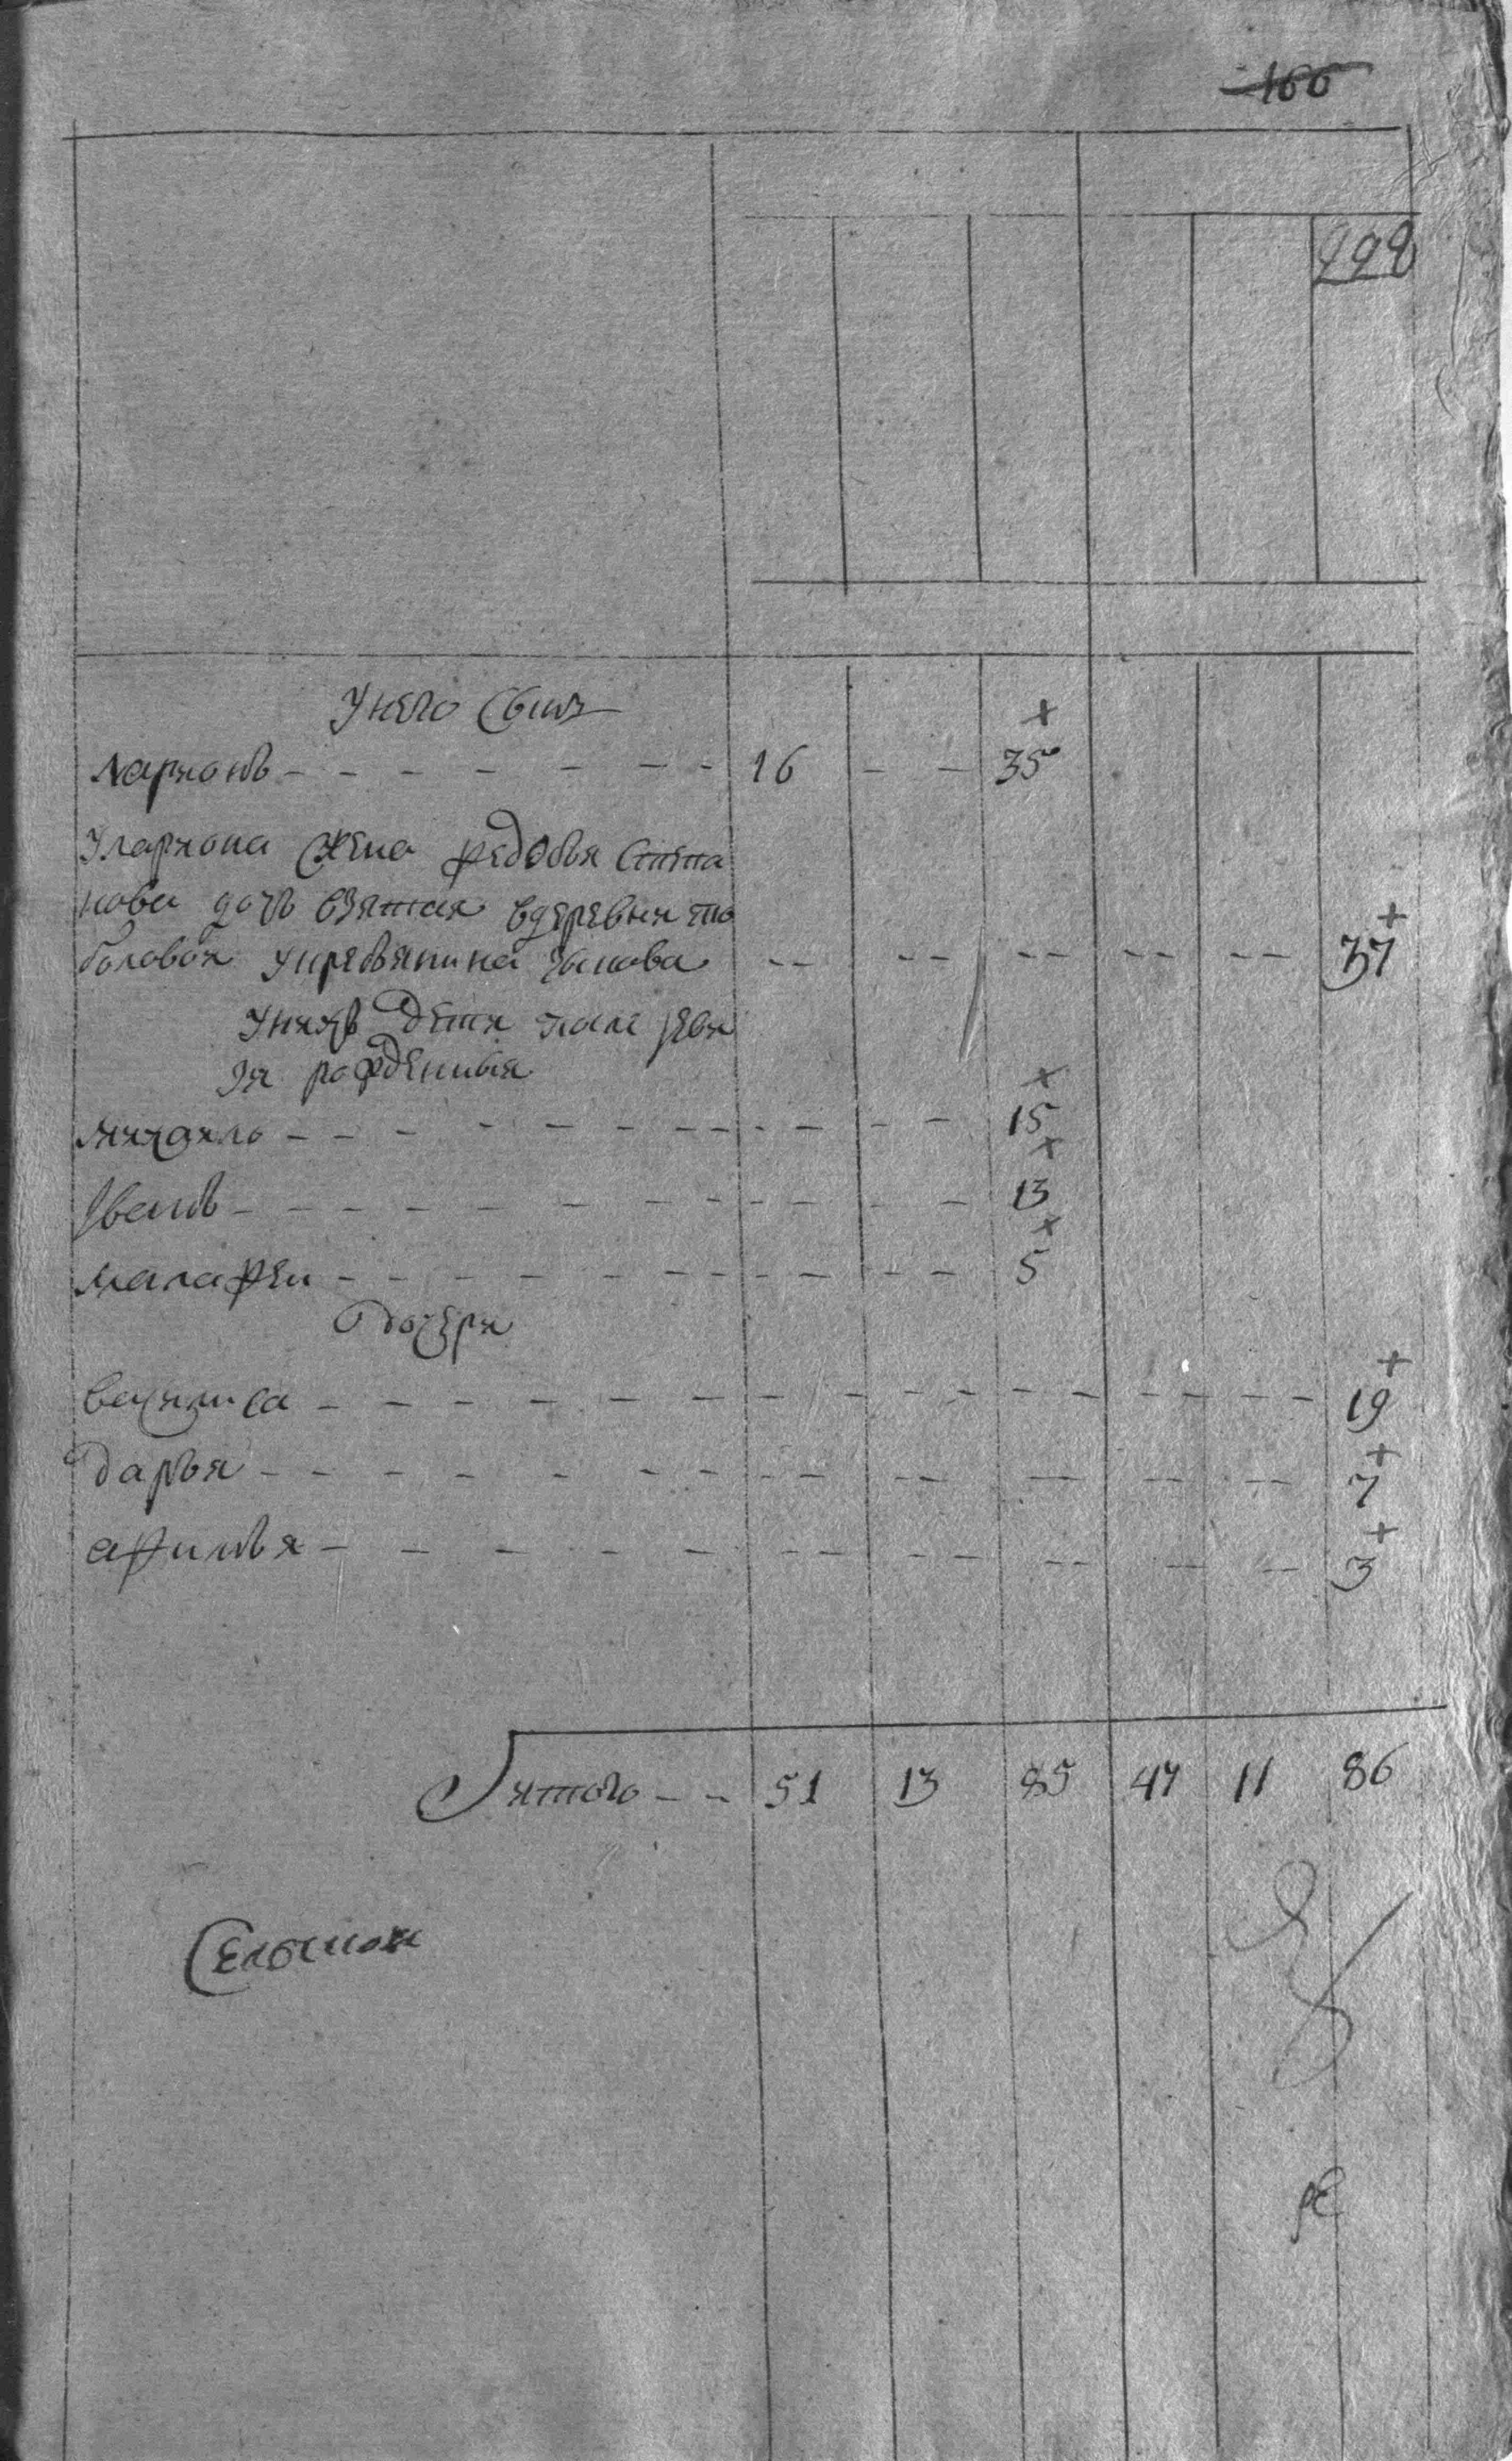 166
222
У него сынъ
ларионъ - - - - - - - 16 - - 35
У лариона жена федосья степа
нова дочь взятая в деревни то
боловой у крестьянина - - - - - - - - - - 37
У нихъ дети после реви
зи рожденныя
михаило - - - - - - - - - - 15
Иванъ - - - - - - - - - - 13
малафеи - - - - - - - - - - 5
дочери
василиса - - - - - - - - - - 19
дарья - - - - - - - - - - 7
афимья - - - - - - - - - - 3
Итого - - 51 13 85 47 11 86